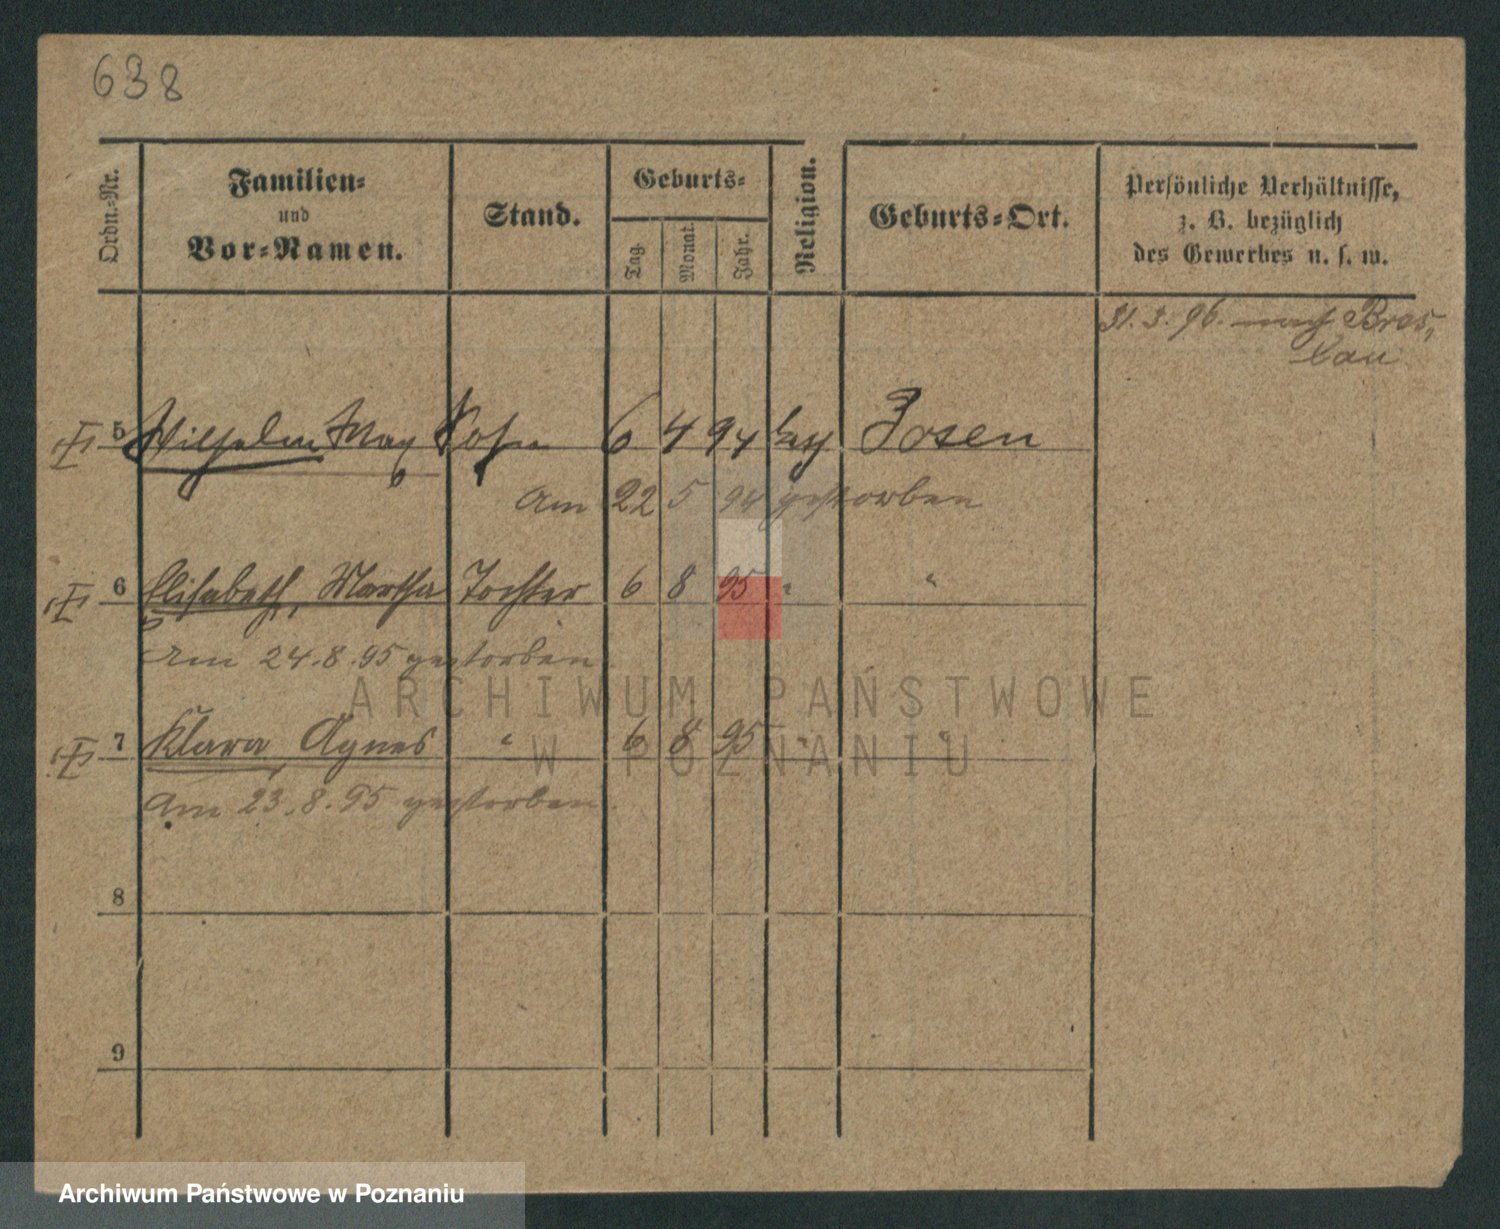 638
Ordn.-Nr.
Familien-
und
Vor-Namen.
Stand.
Geburts-
Tag.
Monat.
Jahr.
Religion.
Geburts-Ort.
Persönliche Verhältnisse,
z. B. bezüglich
des Gewerbes u. s. w.
31. 3. 96. nach Bres,
lau
5 Wilhelm Max Sohn 6 4 94 kath Posen
Am 22 5 94 gestorben
6 Elisabeth, Martha Tochter 6 8 95 " "
Am 24.8.95 gestorben.
7 Klara, Agnes " 6 8 95 " "
Am 23.8.95 gestorben.
8
9
ARCHIWUM PAŃSTWOWE
W POZNANIU
Archiwum Państwowe w Poznaniu